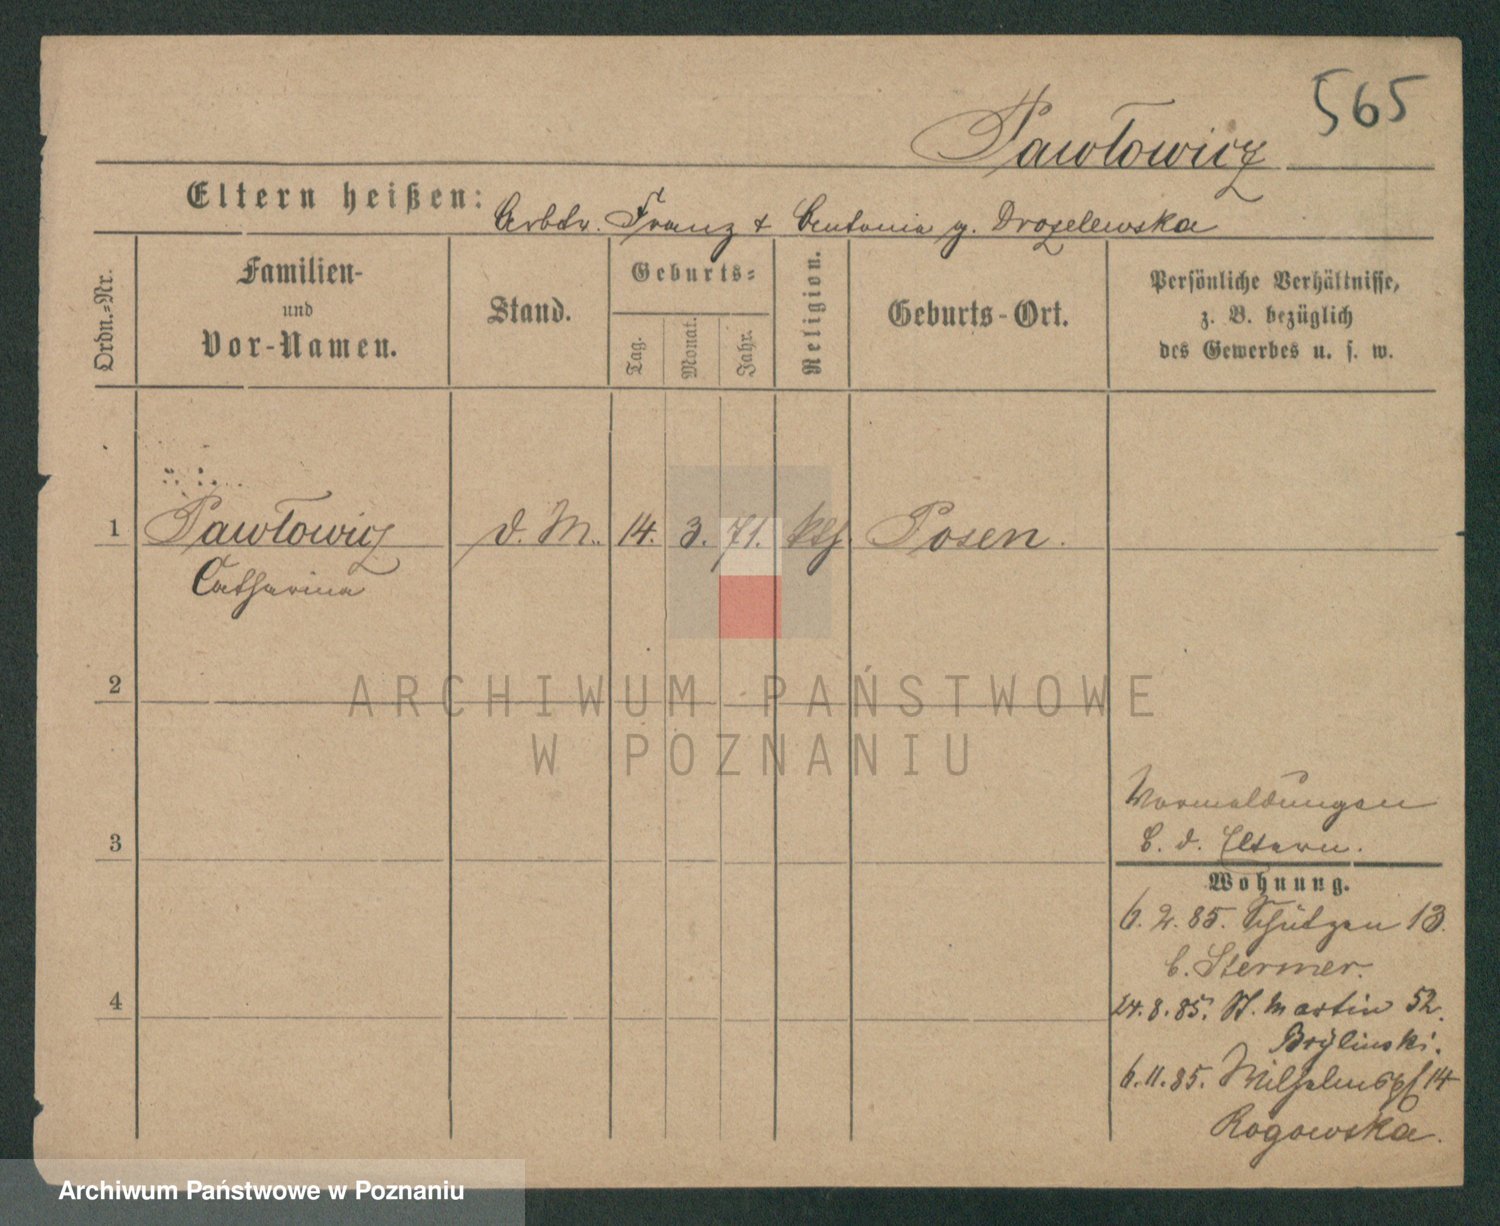 565
Pawłowicz
Eltern heißen: Arbtr. Franz & Antonia g. Drozelewska
Ordn.=Nr.
Familien-
und
Vor-Namen.
Stand.
Geburts=
Tag.
Monat.
Jahr.
Religion.
Geburts-Ort.
Persönliche Verhältnisse,
z. B. bezüglich
des Gewerbes u. s. w.
1 Pawłowicz d. M. 14. 3. 71. kth. Posen.
Catharina
2
3
4
Vormeldungen
b. d. Eltern.
Wohnung.
6. 2. 85. Schützen 13.
b. Stermer.
24. 8. 85. St. Martin 52.
Brylinski.
6. 11. 85. Wilhelmspl 14
Rogowska.
ARCHIWUM PAŃSTWOWE
W POZNANIU
Archiwum Państwowe w Poznaniu